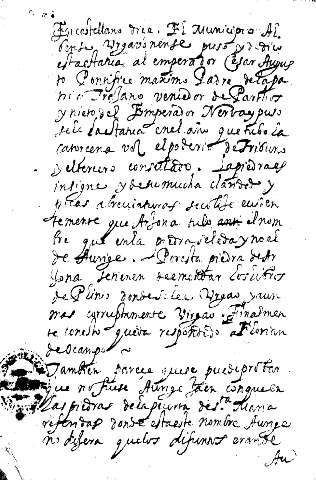 En castellano dice. El Municipio Al
bense Urgavonense puso y dedico
esta estatua al emperador Cesar Augus
to Pontifice maximo Padre de la pa
tria Trajano vencedor de Partos
y nieto del Emperador Nerva y puso
sele la estatua en el año que tubo la
catorcena vez el poderio de Tribuno
y el tercero consulado. La piedra es
insigne y de mucha claridad y
abreviaturas se colige euiden
temente que Arjona tubo el nom
bre que en la piedra se lee da y no el
de Aurige. Por esta piedra de Ar
jona se tienen de emendar los libros
de Plinio donde se lee Urgao y aun
mas corruptamente Virgao. Finalmen
te con esto queda respondido a Florian
de Ocampo ~
Tambien parece que se puede probar
que no fuese Aurige Jaen con que en
las piedras de la puerta de S.ta Maria
referidas donde esta este nombre Aurige
no dixera que los difuntos eran de
Au